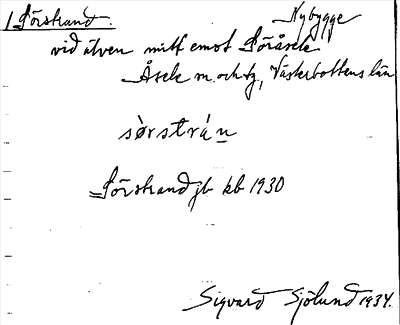 / Sörstrand. Nybygge
vid älven mitt emot Söråsele
Åsele sn. och tg, Västerbottens län
sö̀rstrá̀n
= Sörstrand jb kb 1930
Sigvard Sjölund 1934.